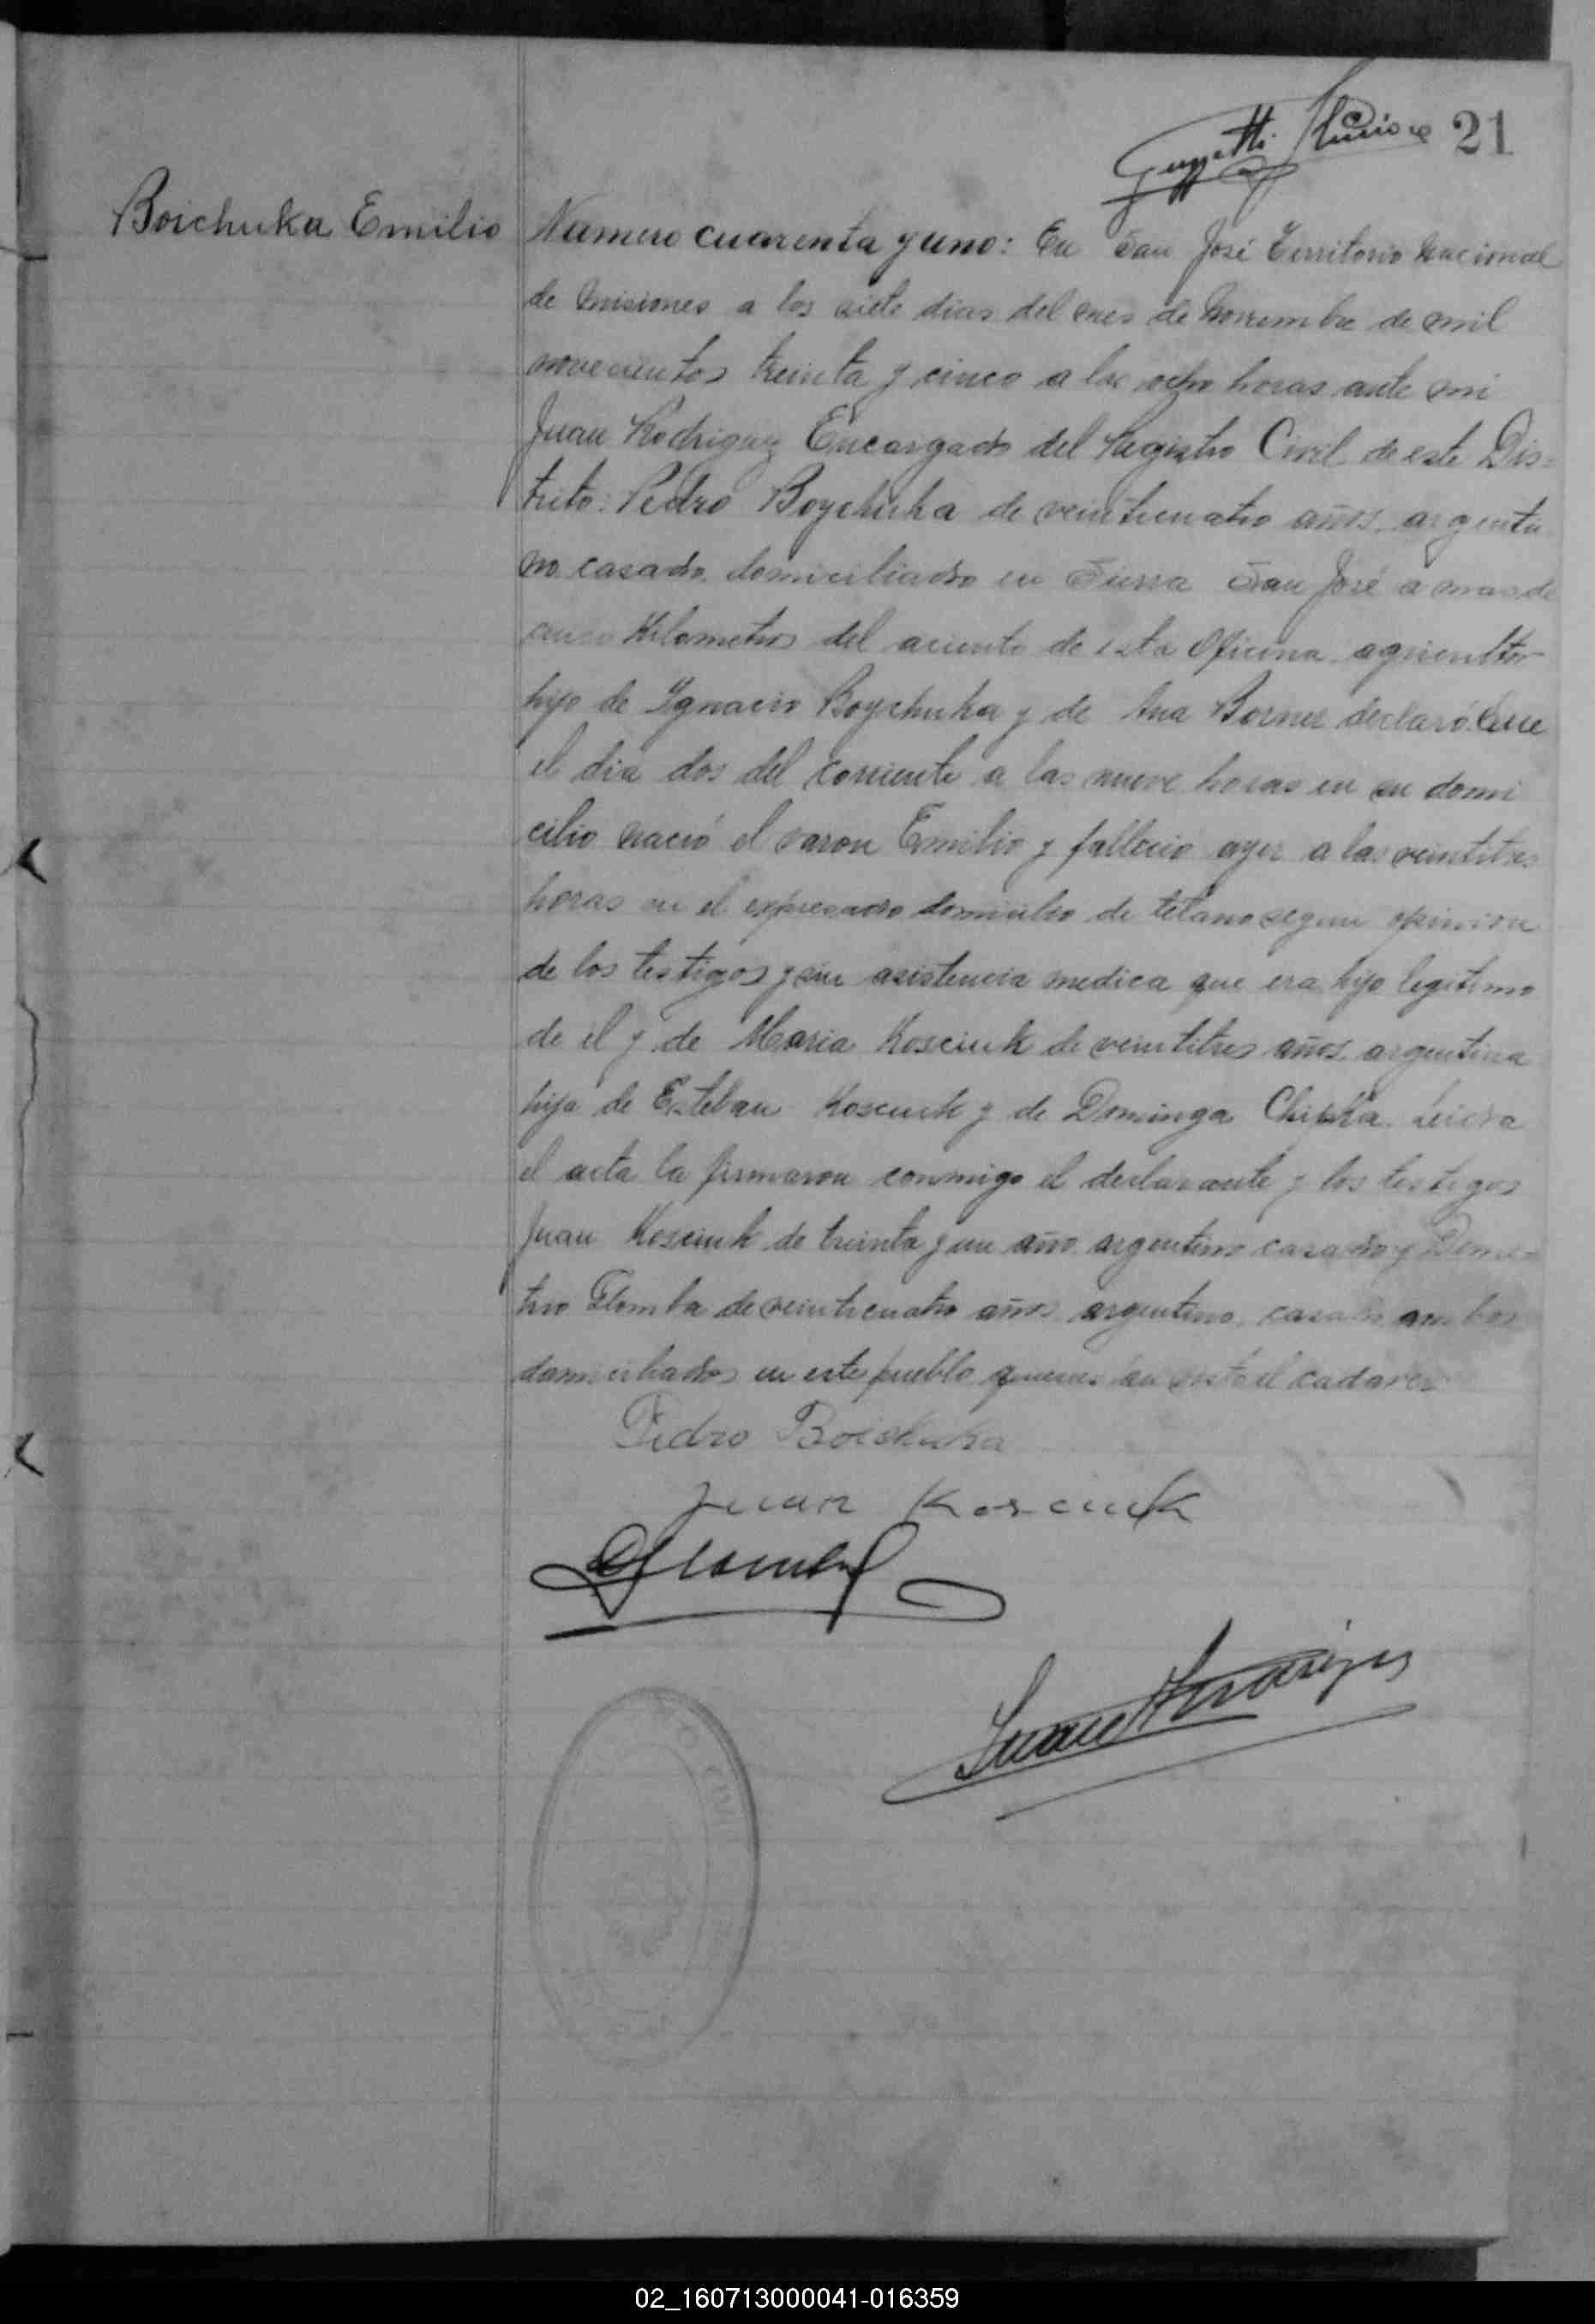 21
Boichuka Emilio
Numero cuarenta y uno: En San José Territorio Nacional
de Misiones a los siete dias del mes de Noviembre de mil
novecientos treinta y cinco a las ocho horas ante mi
Juan Rodriguez Encargado del Registro Civil de este Dis=
trito: Pedro Boychuka de veinticuatro años, argenti
no casado, domiciliado en Sierra San José a mas de
cinco Kilometros del asiento de esta Oficina, agricultor
hijo de Ygnacio Boychuka y de Ana Borner declaró: Que
el dia dos del corriente a las nueve horas en su domi
cilio nació el varon Emilio y falleció ayer a las veintitres
horas en el expresado domicilio de tetano segun opinion
de los testigos y sin asistencia medica que era hijo legitimo
de el y de Maria Kosciuk de veintitres años, argentina
hija de Esteban Kosciuk y de Dominga Chipka. Leida
el acta la firmaron conmigo el declarante y los testigos
Juan Kosciuk de treinta y un año argentino casado y Deme=
trio de veinticuatro años argentino, casado ambos
domiciliados en este pueblo quienes han visto el cadaver
Pedro Boichuka
Juan Kosciuk
02_160713000041-016359